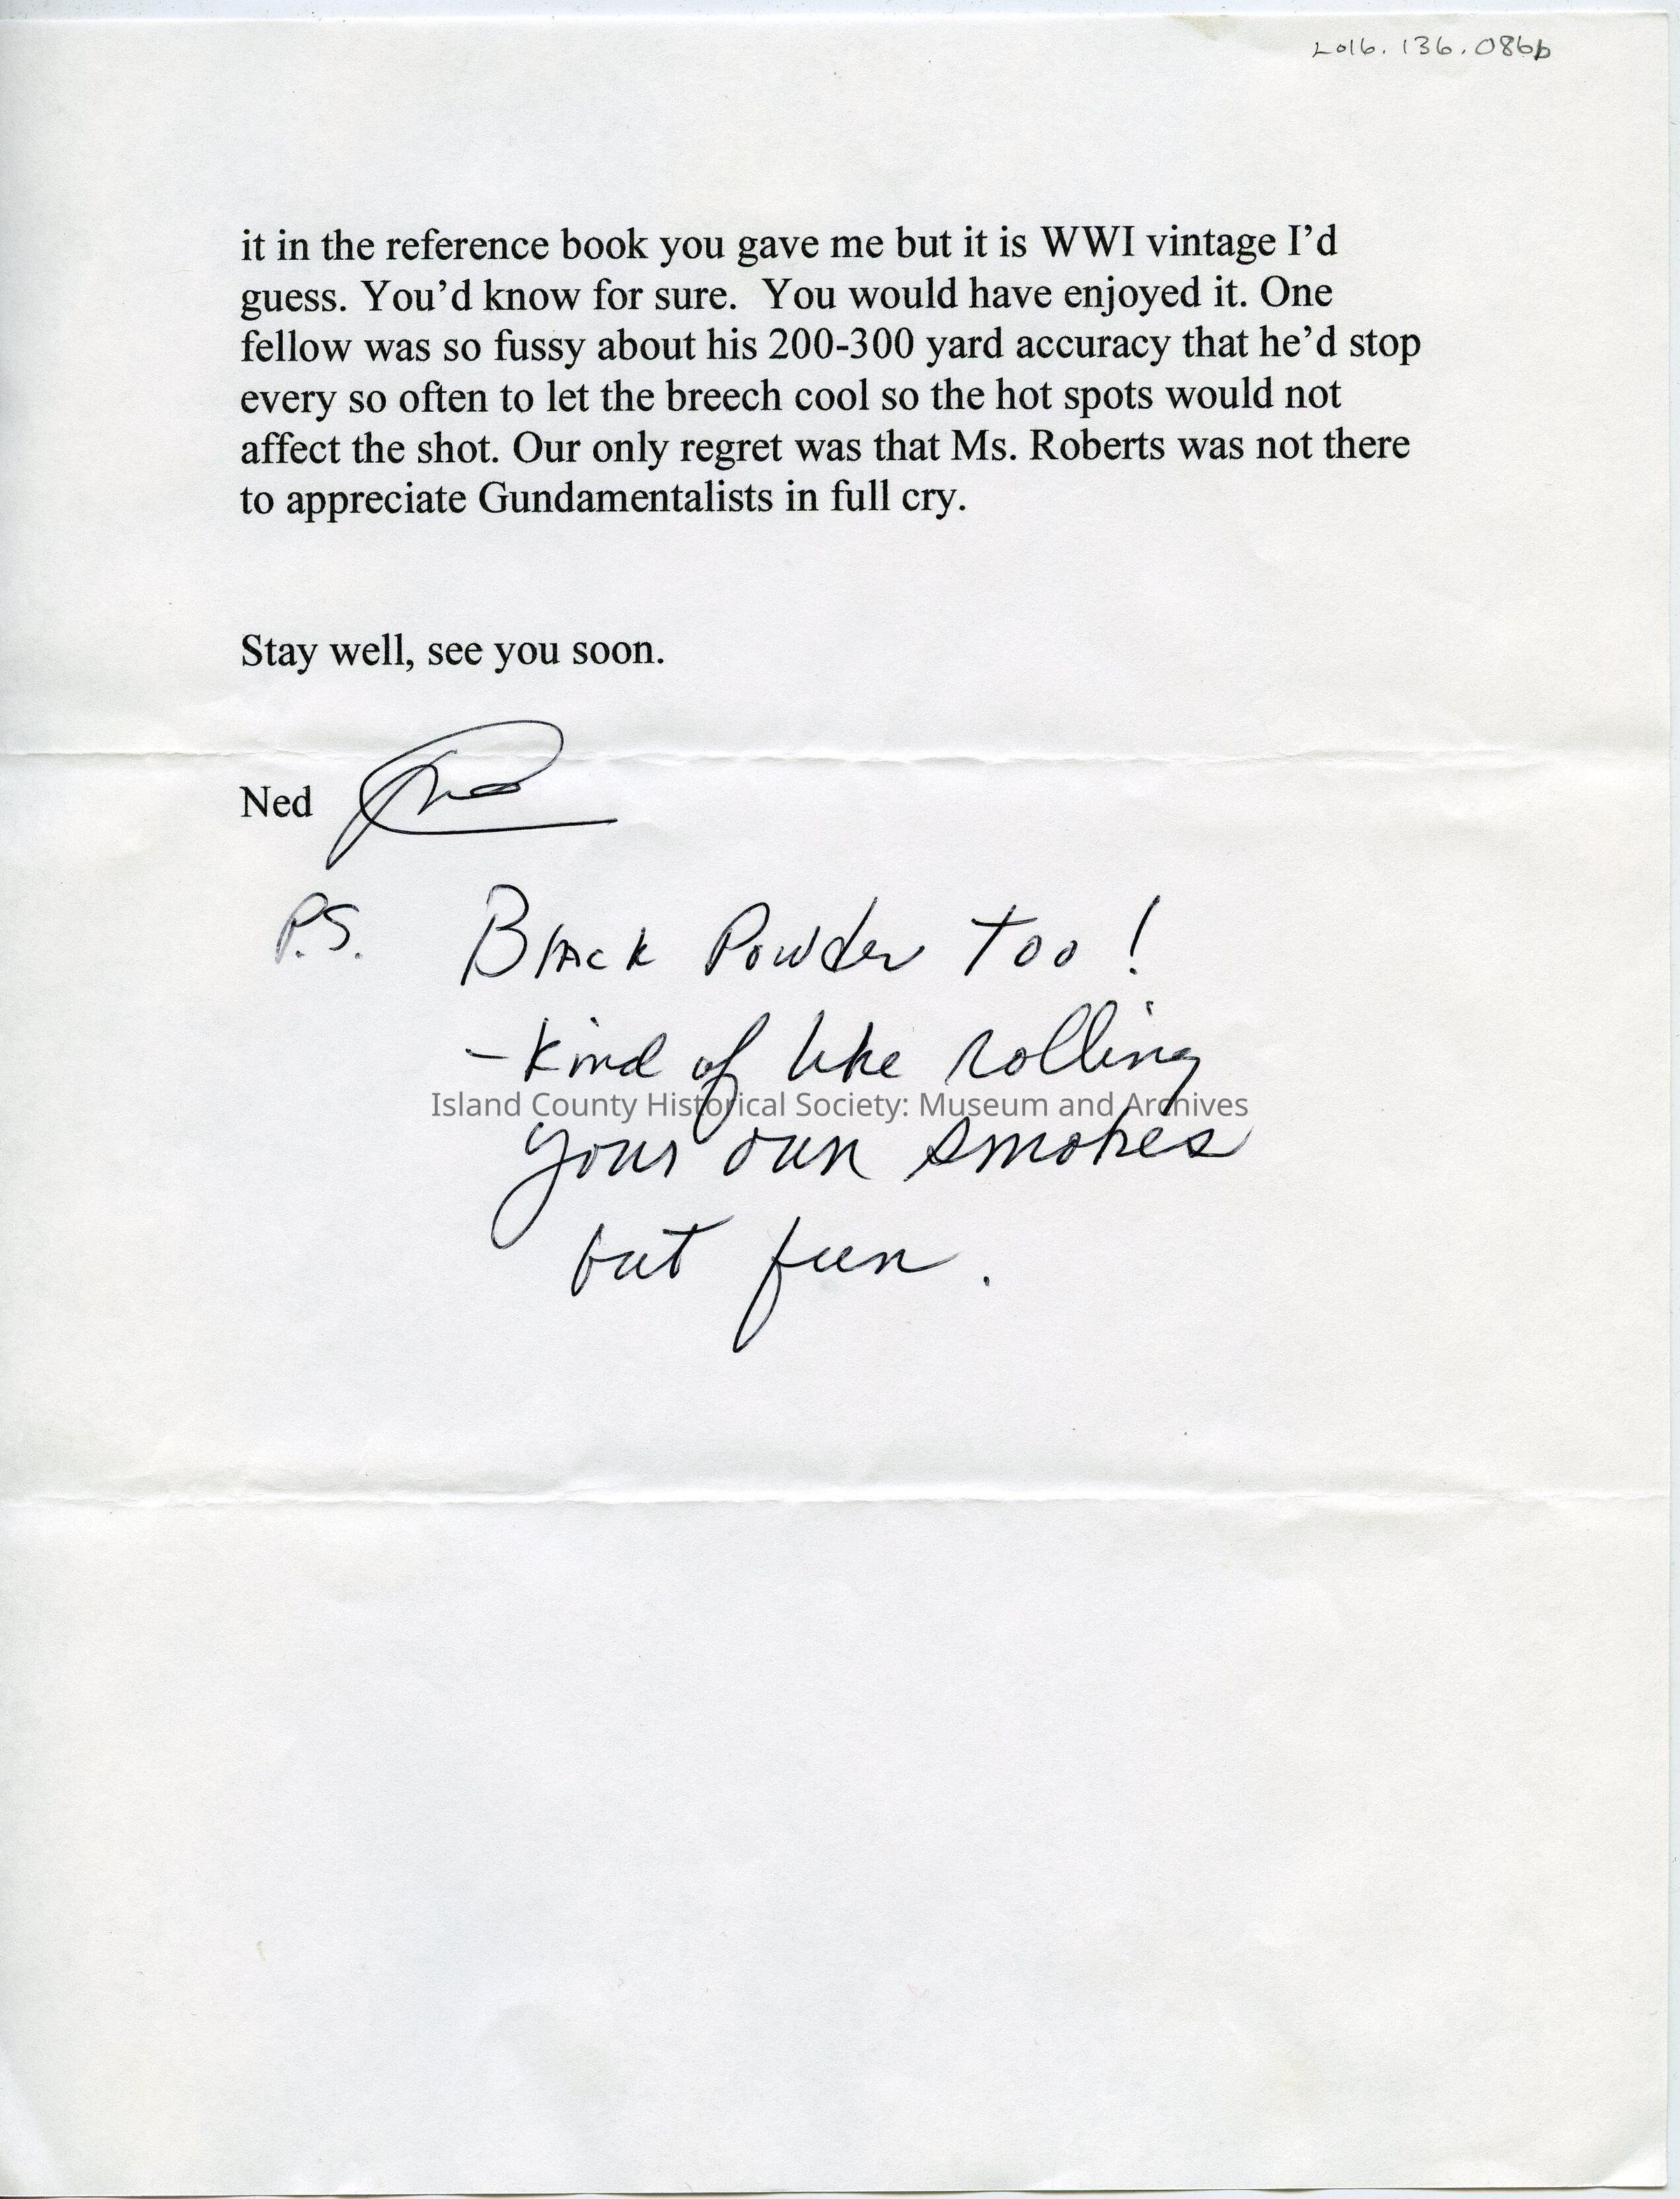 2016.136.086b
it in the reference book you gave me but it is WWI vintage I’d
guess. You’d know for sure.  You would have enjoyed it. One
fellow was so fussy about his 200-300 yard accuracy that he’d stop
every so often to let the breech cool so the hot spots would not
affect the shot. Our only regret was that Ms. Roberts was not there
to appreciate Gundamentalists in full cry.
Stay well, see you soon.
Ned
P.S. Black Powder too!
- kind of like rolling
Island County Historical Society: Museum and Archives
your own smokes
but fun.